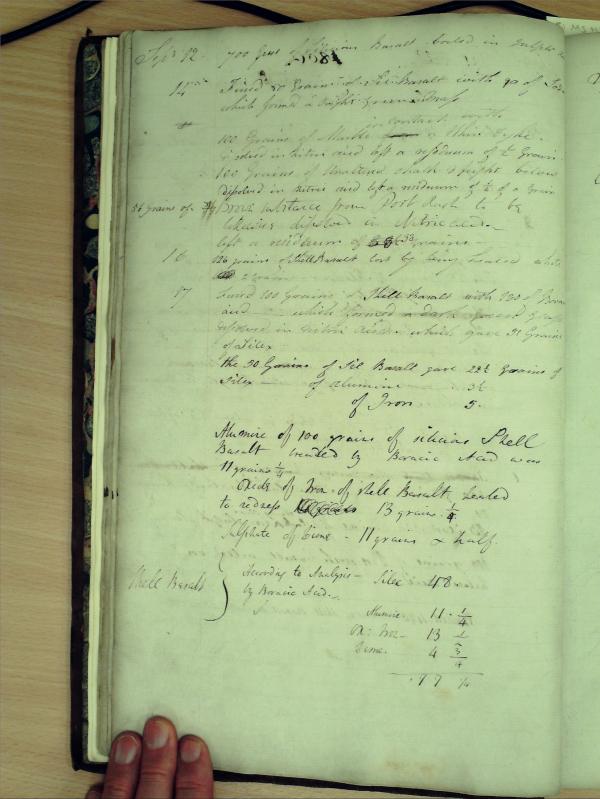 Sepr 12 700 Grns of Silicious Basalt boiled in Sulphc
14 Fused 50 Grains of Sil Basalt with 90 of
which formed a bright green Glass
in contact with
100 Grains of Marble a Whin Dyke
dissolved in nitric acid left a residuum of ½ Grain
100 Grains of Unaltered chalk 2 feet below
dissolved in nitric acid left a residuum of ½ of a Grain
56 grains of Brown substance from Port to be
dissolved in Nitric acid
left a residuum of 38 grains
16 126 grains of Shell Basalt lost by being heated white
2 grains
17 fused 100 Grains of Shell Basalt with 200 of Borac
acid which formed a dark green Glass
dissolved in nitric acid which gave 51 Grains
of Silex
the 50 Grains of Sil Basalt gave 22½ Grains of
Silex — of alumine 3½
of Iron 5
Alumine of 100 grains of silicious Shell
Basalt treated by Boracic Acid was
11 grains ¼
Oxide of Iron of Shell Basalt, heated
to redness 13 grains ¼
Sulphate of Lime - 11 grains & half.
Shell Basalt } According to Analysis - Silex 48
by Boracic Acid
Alumine 11 - ¼
Ox: Iron - 13 ¼
Lime 4 ¾
77 ¼